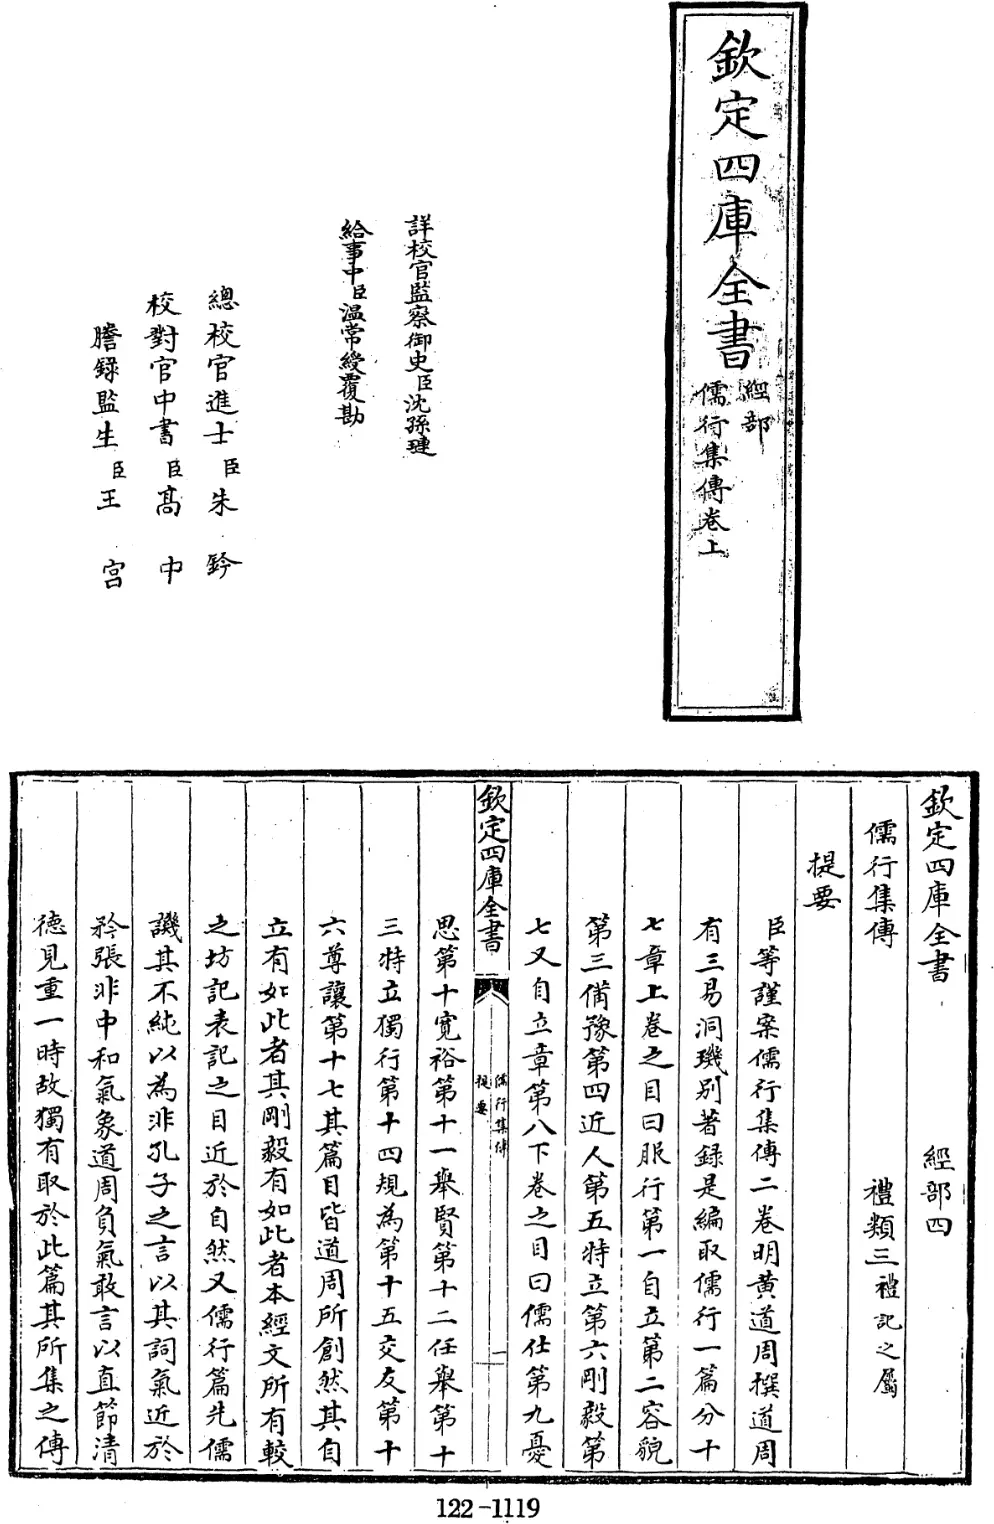 欽定四庫全書
經部
儒行集傳卷上
詳校官監察御史臣沈孫璉
給事中臣溫常綬覆勘
總校官進士臣朱鈐
校對官中書臣高中
謄錄監生臣王宮
欽定四庫全書 經部四
儒行集傳 禮類三禮記之屬
提要
臣等謹案儒行集傳二卷明黃道周撰道周
有三易洞璣别著録是編取儒行一篇分十
七章上卷之目曰服行第一自立第二容貌
第三備豫第四近人第五特立第六剛毅第
七又自立章第八下卷之目曰儒仕第九憂
欽定四庫全書
儒行集傳
提要
一
思第十寛裕第十一舉賢第十二任舉第十
三特立獨行第十四規為第十五交友第十
六尊讓第十七其篇目皆道周所創然其自
立有如此者其剛毅有如此者本經文所有較
之坊記表記之目近於自然又儒行篇先儒
譏其不純以為非孔子之言以其詞氣近於
矜張非中和氣象道周負氣敢言以直節清
德見重一時故獨有取於此篇其所集之傳
122-1119